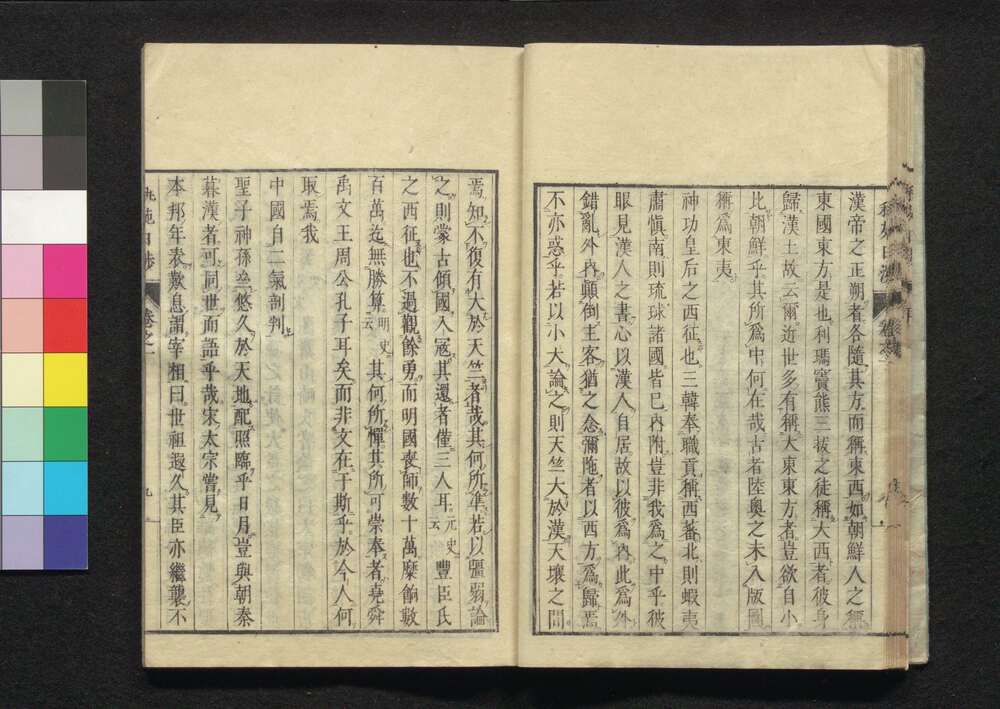 漢帝之正朔者各隨其方而稱東西如朝鮮人之稱
東國東方是也利瑪竇熊三拔之徒稱大西者彼身
歸漢土故云爾近世多有稱大東東方者豈欲自小
比朝鮮乎其所爲中何在哉古者陸奧之未入版圖
稱爲東夷
神功皇后之西征也三韓奉職貢稱西蕃北則蝦夷
肅愼南則琉球諸國皆已內附豈非我爲之中乎彼
眼見漢人之書心以漢人自居故以彼爲內此爲外
錯亂外內顚倒主客猶之念彌陁者以西方爲歸焉
不亦惑乎若以小大論之則天竺大於漢天壤之間
焉知不復有大於天竺者哉其何所準若以彊弱論
之則蒙古傾國入寇其還者僅三人耳元史云豐臣氏
之西征也不過觀餘勇而明國喪師數十萬糜餉數
百萬迄無勝算明史云其何所憚其所可崇奉者堯舜
禹文王周公孔子耳矣而非文在于斯乎於今人何
取焉我
中國自二氣剖判
聖子神孫悠久於天地配照臨乎日月豈與朝秦
暮漢者可同世而語乎哉宋太宗嘗見
本邦年表歎息謂宰相曰世祖遐久其臣亦繼襲不
卷之一
九